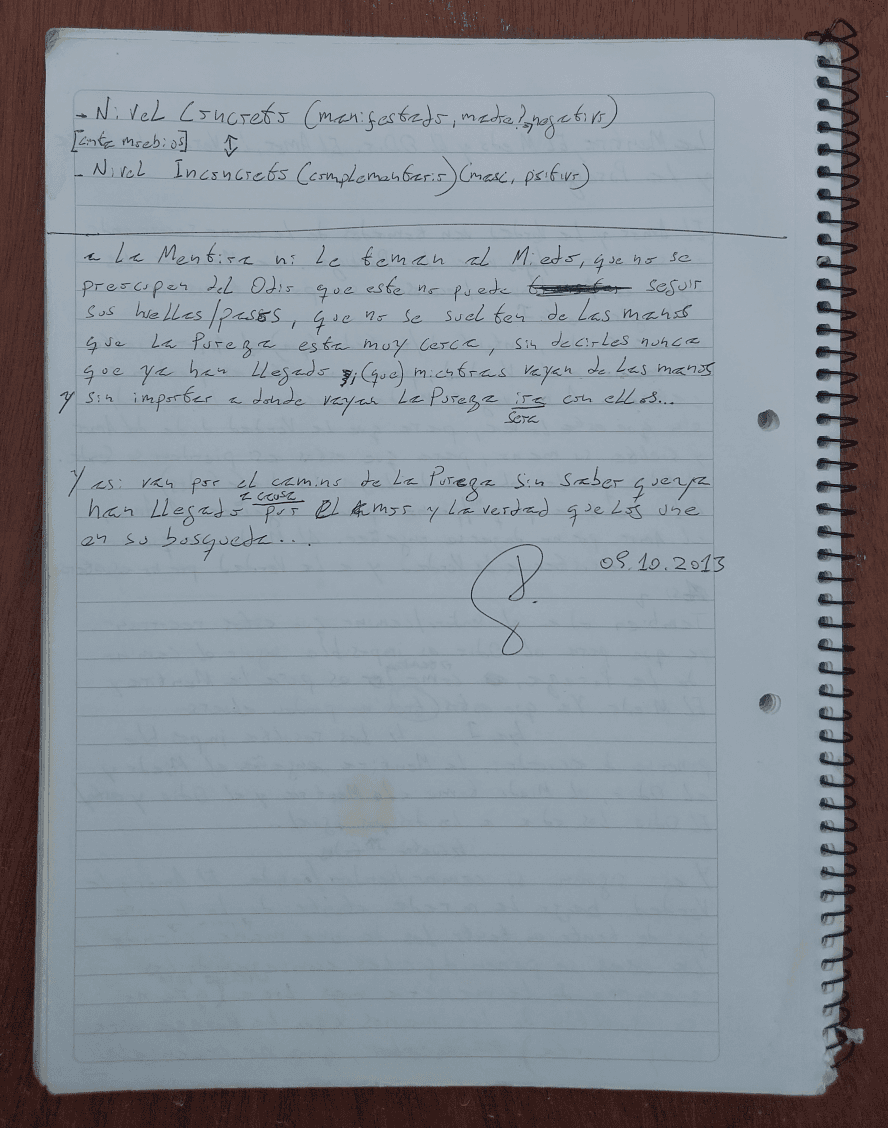 - Nivel Concreto (manifestado, madre?, negativo)
[cinta moebios] ↕
- Nivel Inconcreto (complementario) (masc, positivo)
a La Mentira ni le teman al Miedo, que no se
preocupen del Odio que este no puede seguir
sus huellas/pasos, que no se suelten de las manos
que la Pureza esta muy cerca, sin decirles nunca
que ya han llegado (que) mientras vayan de las manos
y sin importar a donde vayan La Pureza ira con ellos...
sera
Y asi van por el camino de La Pureza sin saber que ya
a causa
han llegado por el Amor y La verdad que los une
en su busqueda...
09.10.2013